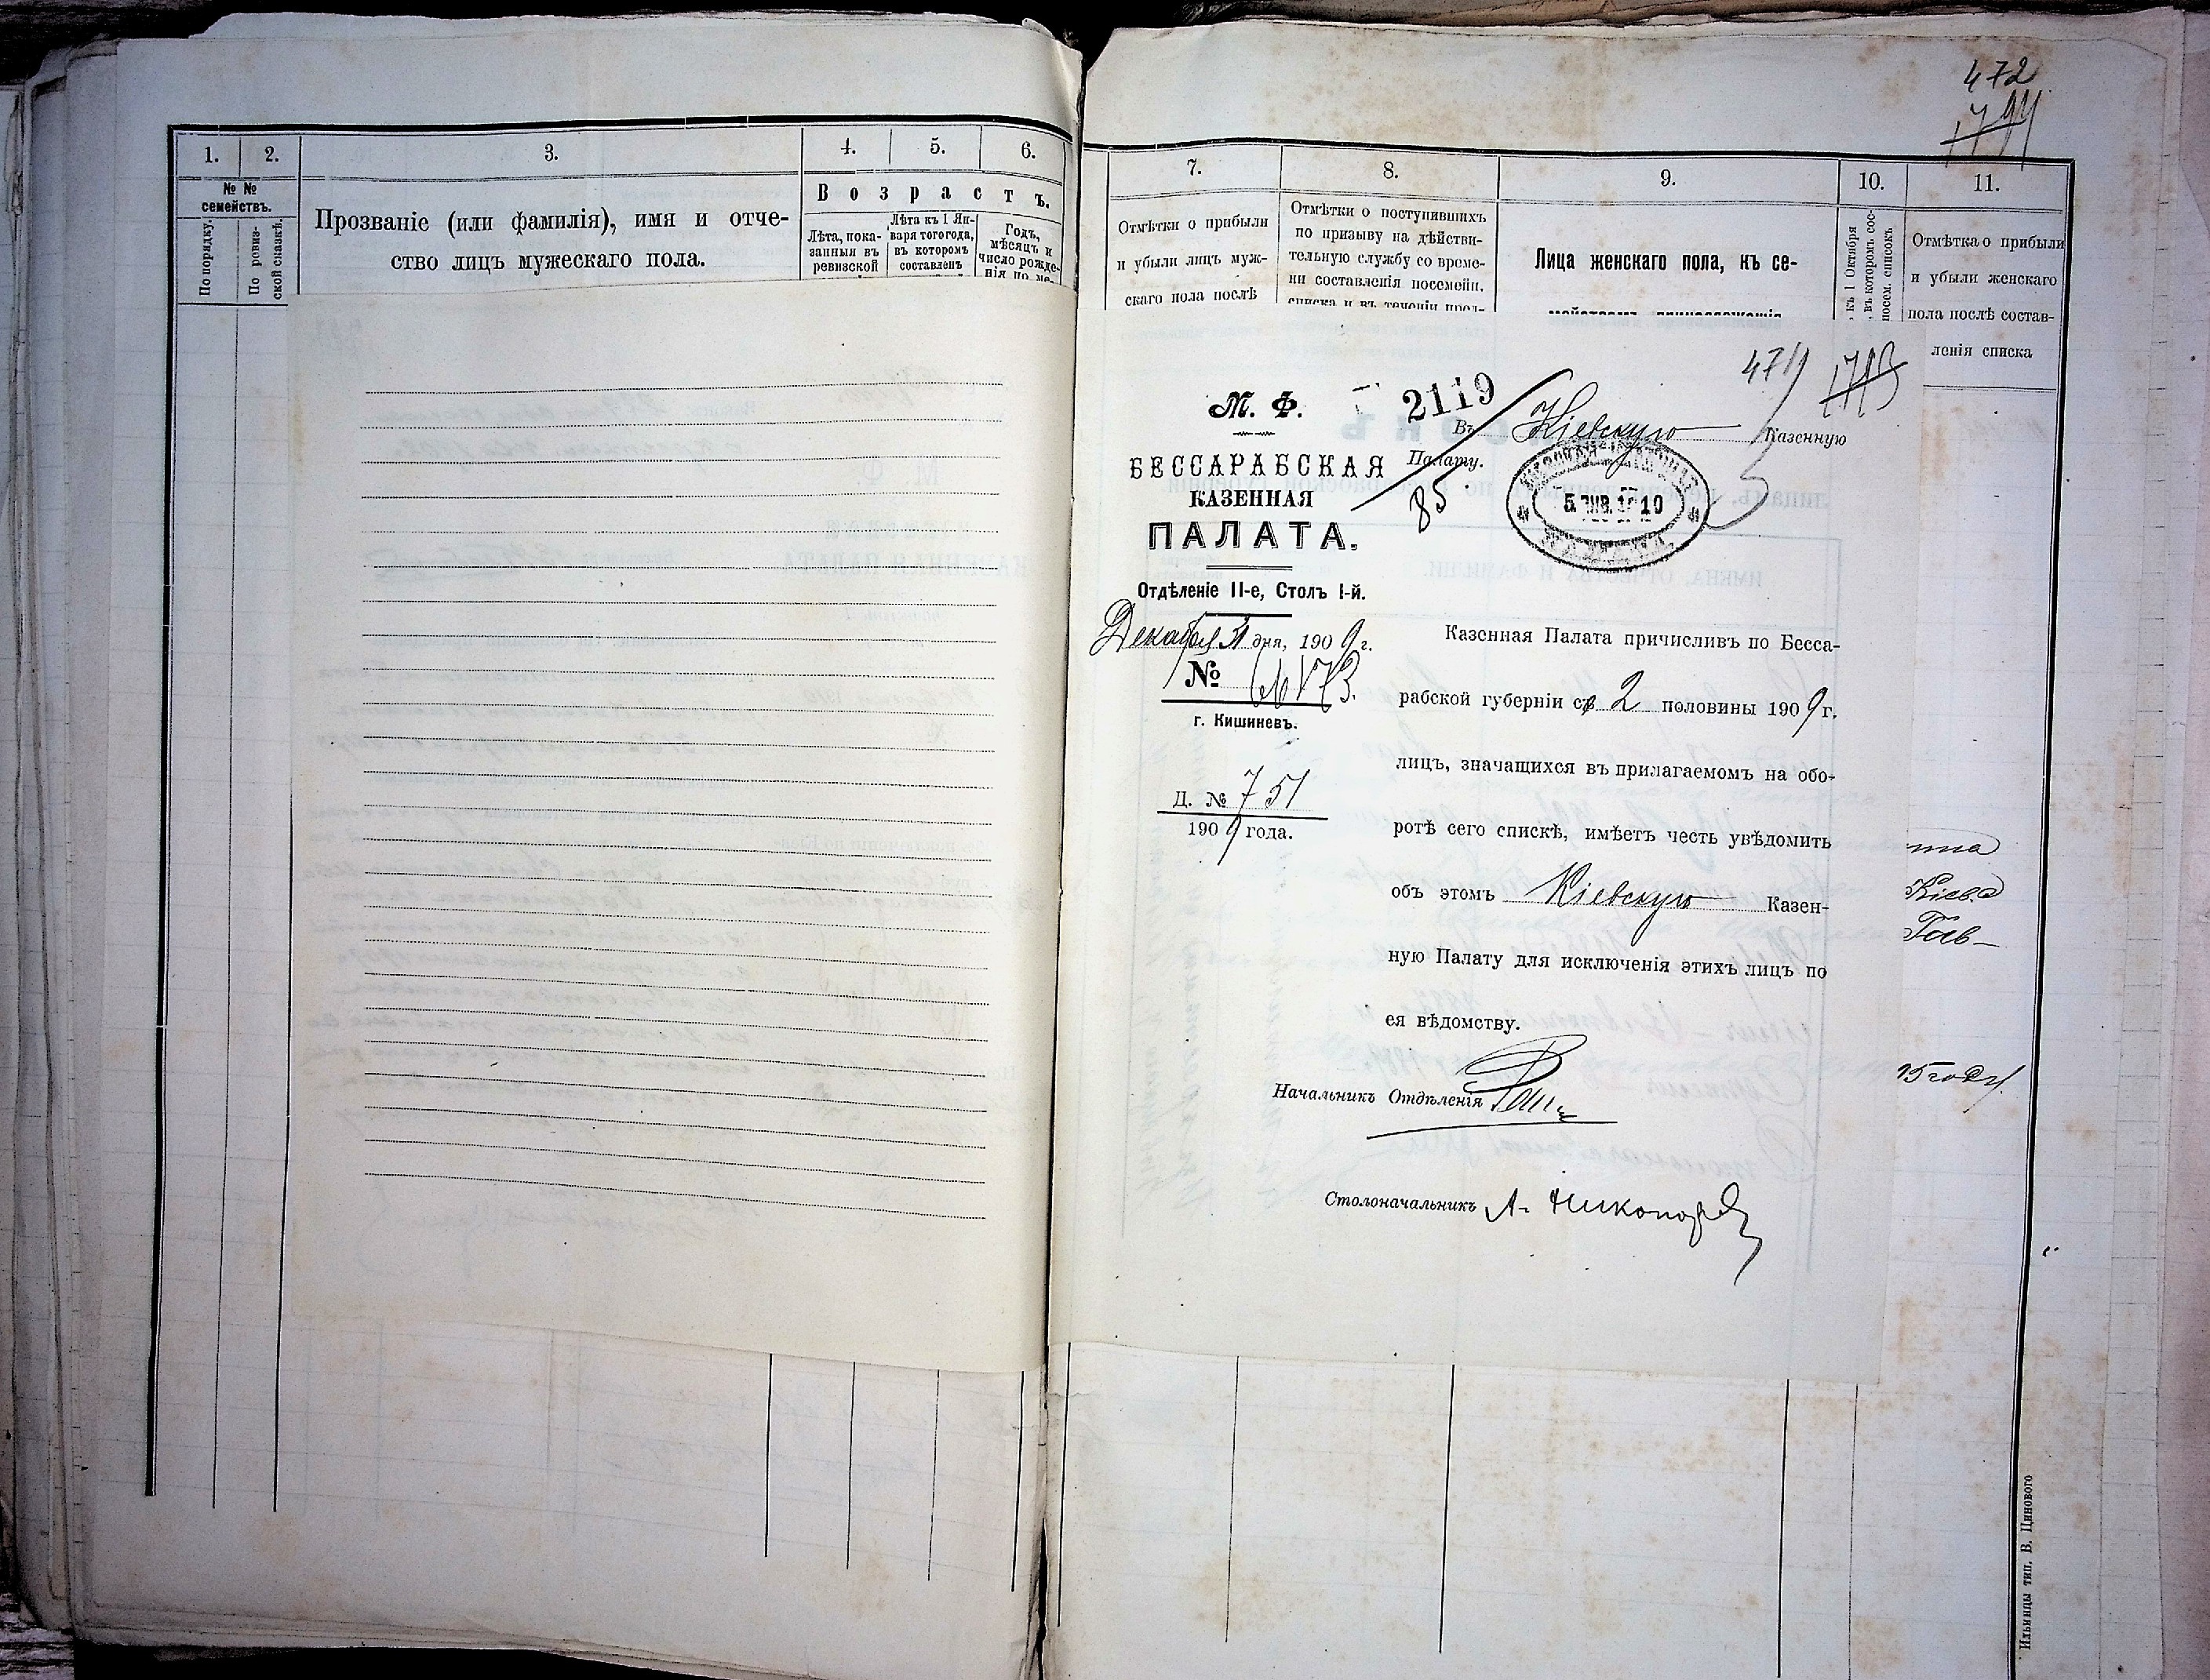 1.
2.
3.
4.
5.
6.
№ №
семействъ.
По порядку.
По ревиз-
ской сказкѣ.
Прозваніе (или фамилія), имя и отче-
ство лицъ мужескаго пола.
Возрастъ.
Лѣта, пока-
занныя въ
ревизской
Лѣта къ 1 Ян-
варя того года,
въ которомъ
составленъ
Годъ,
мѣсяцъ и
число рожде-
нія по ме-
472
7.
8.
9.
10.
11.
Отмѣтки о прибыли
и убыли лицъ муж-
скаго пола послѣ
Отмѣтки о поступившихъ
по призыву на дѣйстви-
тельную службу со време-
ни составленія посемейн.
списка и въ теченіи
Лица женскаго пола, къ се-
мействамъ принадлежащія
къ 1 Октября
въ которомъ сос-
посем. списокъ
Отмѣтка о прибыли
и убыли женскаго
пола послѣ состав-
ленія списка
471
М. Ф.
БЕССАРАБСКАЯ
КАЗЕННАЯ
ПАЛАТА.
Отдѣленіе II-е, Столъ I-й.
Декабря 31 дня, 1909 г.
№
г. Кишиневъ.
Д. № 751
1909 года.
2119
Въ Кіевскую Казенную
Палату.
85
5 ЯНВ. 1910
Казенная Палата причисливъ по Бесса-
рабской губерніи съ 2 половины 1909 г.
лицъ, значащихся въ прилагаемомъ на обо-
ротѣ сего спискѣ, имѣетъ честь увѣдомить
объ этомъ Кіевскую Казен-
ную Палату для исключенія этихъ лицъ по
ея вѣдомству.
Начальникъ Отдѣленія
Столоначальникъ А. Никоноръ
Кіева
Гав-
15 году
Ильинцы тип. В. Цинового